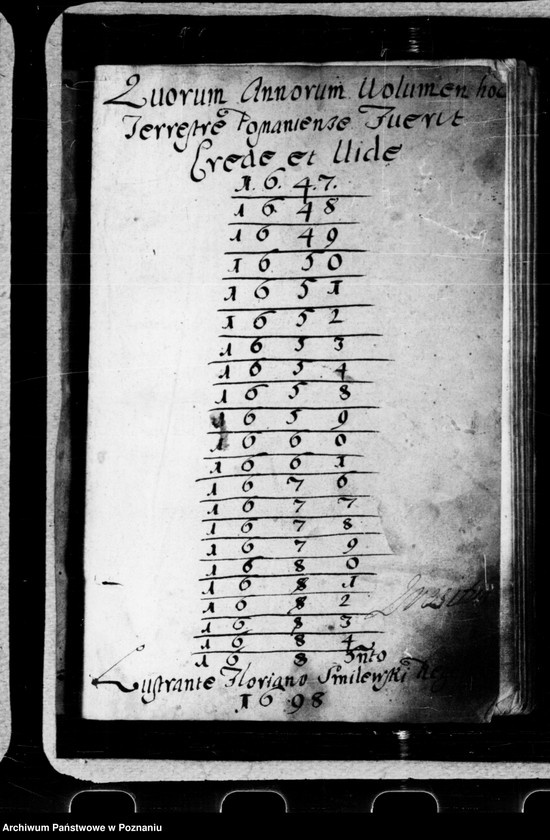 Quorum Annorum Volumen hoc
Terrestre Posnaniense Fuerit
Crede et Vide
1.6.4.7.
1648
1649
1650
1651
1652
1653
1654
1658
1659
1660
1661
1676
1677
1678
1679
1680
1681
1682
1683
1684
168
Lustrante Floriano Smilewski
1698
Archiwum Państwowe w Poznaniu